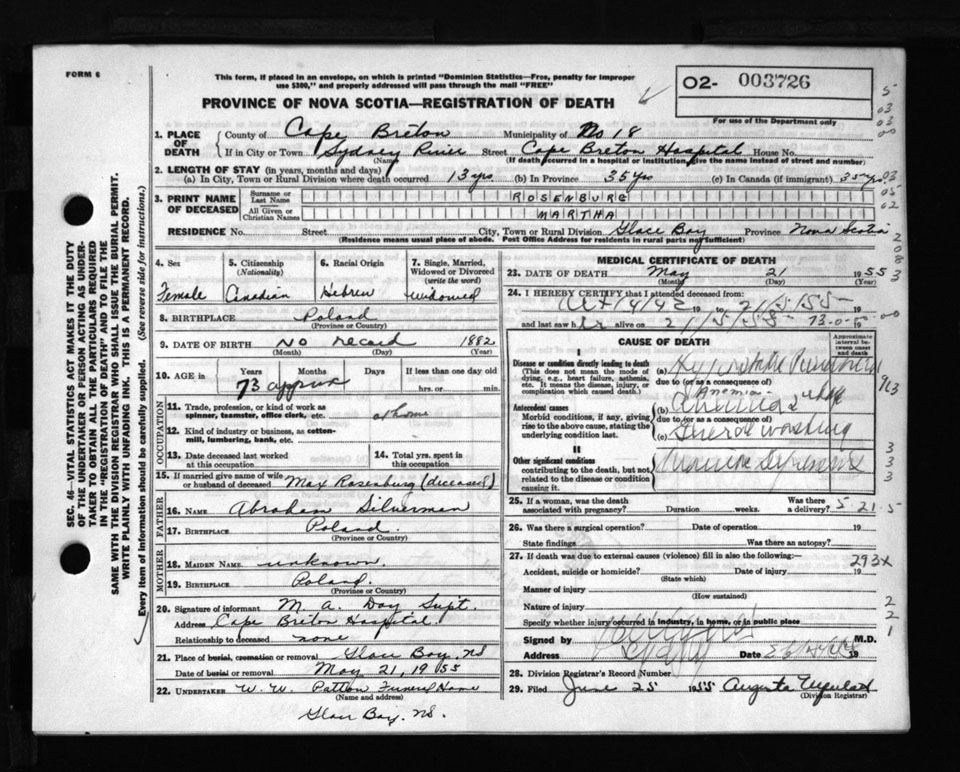 FORM 6
This form, if placed in an envelope, on which is printed "Dominion Statistics—Free, penalty for improper
use $300," and properly addressed will pass through the mail "FREE"
O2- 003726
For use of the Department only
PROVINCE OF NOVA SCOTIA—REGISTRATION OF DEATH
1. PLACE OF DEATH
County of Cape Breton Municipality of No 18
If in City or Town Sydney River Street Cape Breton Hospital House No.
(Name) (If death occurred in a hospital or institution, give the name instead of street and number)
2. LENGTH OF STAY (in years, months and days)
(a) In City, Town or Rural Division where death occurred 13 yrs (b) In Province 35 yrs (c) In Canada (if immigrant) 35 yrs
3. PRINT NAME OF DECEASED
Surname or Last Name ROSENBURG
All Given or Christian Names MARTHA
RESIDENCE No. Street City, Town or Rural Division Glace Bay Province Nova Scotia
(Residence means usual place of abode. Post Office Address for residents in rural parts not sufficient)
4. Sex Female
5. Citizenship (Nationality) Canadian
6. Racial Origin Hebrew
7. Single, Married, Widowed or Divorced (write the word) widowed
8. BIRTHPLACE Poland
(Province or Country)
9. DATE OF BIRTH No record 1882
(Month) (Day) (Year)
10. AGE in Years Months Days If less than one day
73 approx hrs. or min.
OCCUPATION
11. Trade, profession, or kind of work as spinner, teamster, office clerk, etc. at home
12. Kind of industry or business, as cotton-mill, lumbering, bank, etc.
13. Date deceased last worked at this occupation
14. Total yrs. spent in this occupation
15. If married give name of wife or husband of deceased Max Rosenburg (deceased)
FATHER
16. NAME Abraham Silverman
17. BIRTHPLACE Poland.
(Province or Country)
MOTHER
18. MAIDEN NAME unknown.
19. BIRTHPLACE Poland.
(Province or Country)
20. Signature of informant M. A. Day Supt.
Address Cape Breton Hospital.
Relationship to deceased none
21. Place of burial, cremation or removal Glace Bay, NS
Date of burial or removal May 21, 1955
22. UNDERTAKER W. W. Patton Funeral Home
(Name and address)
Glace Bay, N.S.
MEDICAL CERTIFICATE OF DEATH
23. DATE OF DEATH May 21 1955
(Month) (Day)
24. I HEREBY CERTIFY that I attended deceased from:
19 to 21/5/55
and last saw her alive on 21/5/55
CAUSE OF DEATH
Approximate interval between onset and death
I
Disease or condition directly leading to death
(This does not mean the mode of dying, e.g., heart failure, asthenia, etc. It means the disease, injury, or complication which caused death.)
(a)
due to (or as a consequence of)
Anemia
Antecedent causes
Morbid conditions, if any, giving rise to the above cause, stating the underlying condition last.
(b)
due to (or as a consequence of)
(c)
II
Other significant conditions
contributing to the death, but not related to the disease or condition causing it.
25. If a woman, was the death associated with pregnancy? Duration weeks. Was there a delivery?
26. Was there a surgical operation? Date of operation 19
State findings Was there an autopsy?
27. If death was due to external causes (violence) fill in also the following:—
Accident, suicide or homicide? Date of injury 19
(State which)
293x
Manner of injury
(How sustained)
Nature of injury
Specify whether injury occurred in industry, in home, or in public place
Signed by M.D.
Address Date 19
28. Division Registrar's Record Number
29. Filed June 25 1955 Augusta
(Division Registrar)
SEC. 46—VITAL STATISTICS ACT MAKES IT THE DUTY
OF THE UNDERTAKER OR PERSON ACTING AS UNDER-
TAKER TO OBTAIN ALL THE PARTICULARS REQUIRED
IN THE "REGISTRATION OF DEATH" AND TO FILE THE
SAME WITH THE DIVISION REGISTRAR WHO SHALL ISSUE THE BURIAL PERMIT.
WRITE PLAINLY WITH UNFADING INK. THIS IS A PERMANENT RECORD.
Every item of information should be carefully supplied. (See reverse side for instructions.)